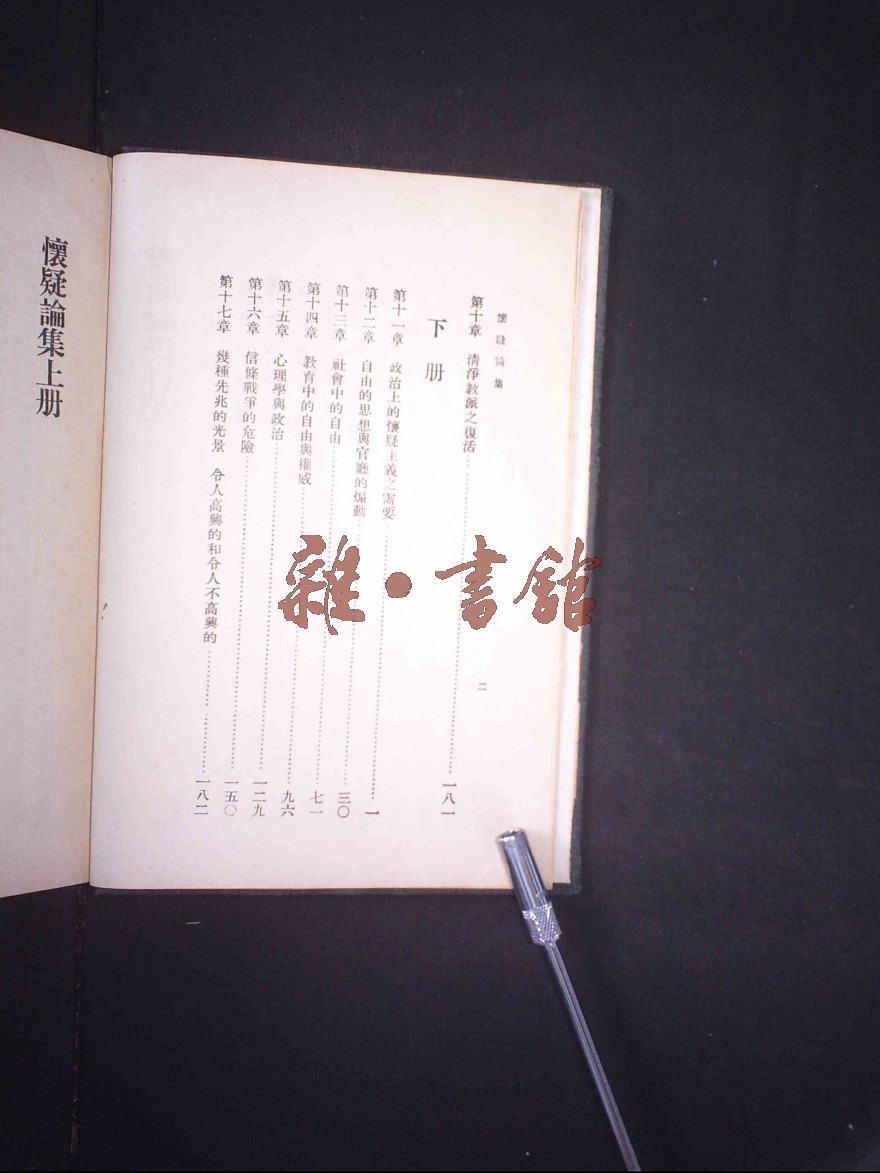 懷疑論集
二
第十章 清淨教派之復活 一八一
下册
第十一章 政治上的懷疑主義之需要 一
第十二章 自由的思想與官廳的煽動 三〇
第十三章 社會中的自由 七一
第十四章 教育中的自由與權威 九六
第十五章 心理學與政治 一二九
第十六章 信條戰爭的危險 一五〇
第十七章 幾種先兆的光景 令人高興的和令人不高興的 一八二
懷疑論集上册
雜·書館